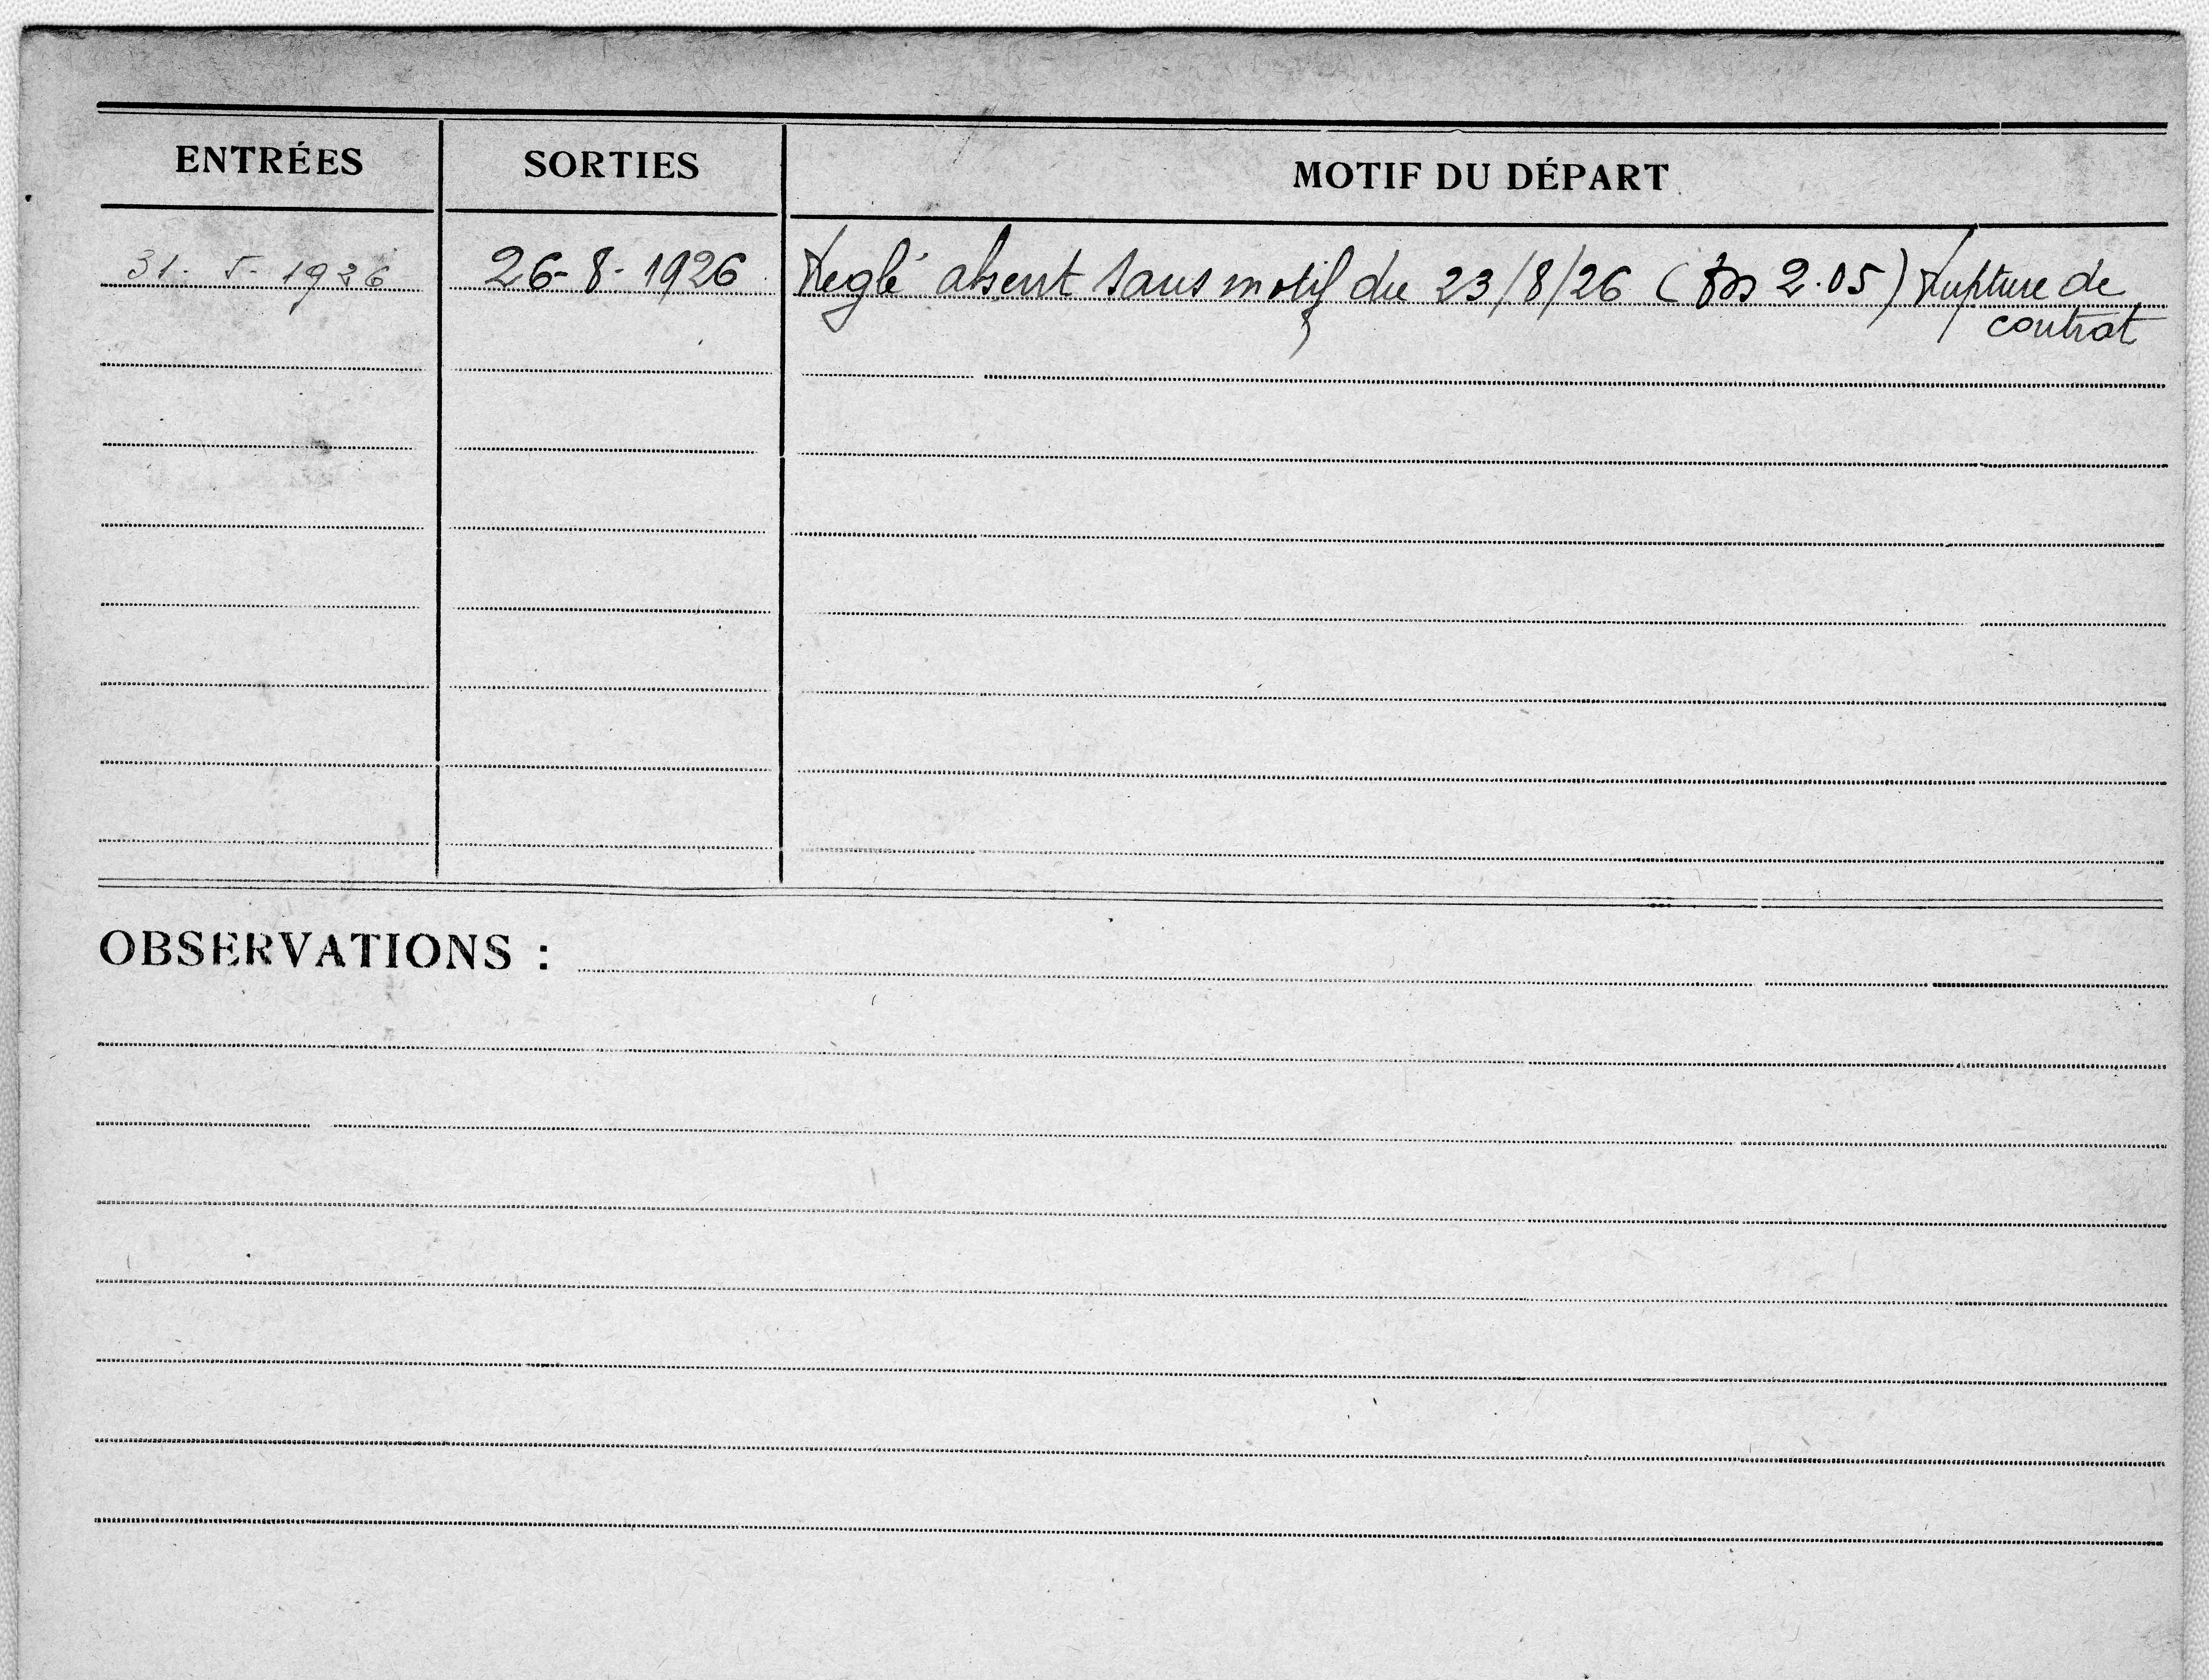 ENTRÉES SORTIES MOTIF DU DÉPART
31. 5. 1926 26-8-1926 Reglé absent sans motif du 23/8/26 ( 2.05) rupture de
contrat
OBSERVATIONS :